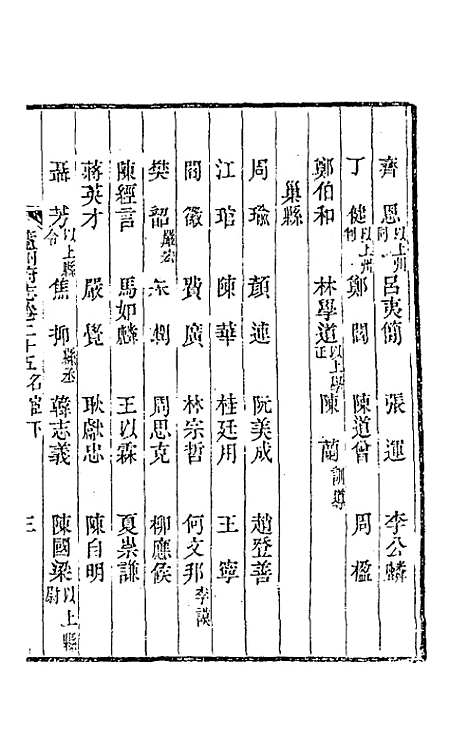 齊恩以上州同呂夷簡張運李公麟
丁健以上州判鄭閎陳道曾周楹
鄭伯和林學道以上學正陳蘭訓導
巢縣
周瑜顏連阮美成趙登善
江琯陳華桂廷用王寧
閻徽費廣林宗哲何文邦李謨
樊韶嚴宏 周思克柳應侯
陳經言馬如麟王以霖夏崇謙
蔣英才嚴覺耿獻忠陳自明
聶芳以上縣令焦抑縣丞韓志義陳國梁以上縣尉
廬州府志卷二十五名宦下 三